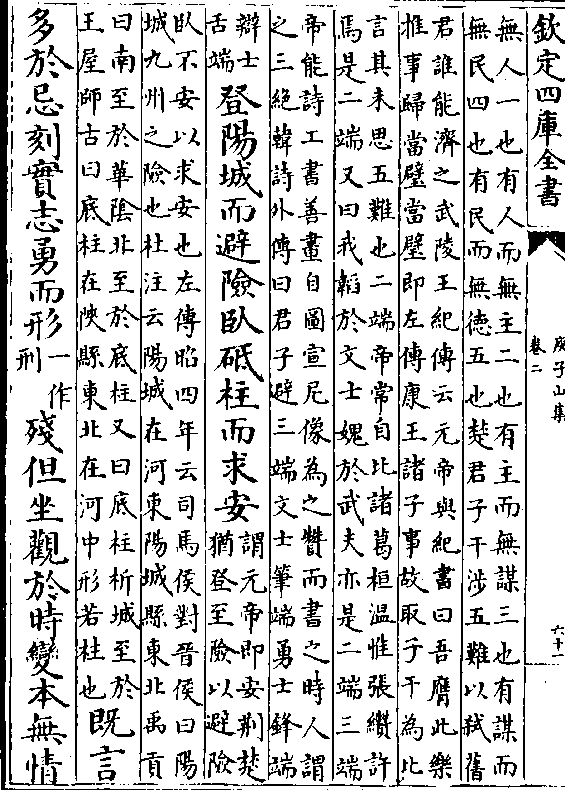 欽定四庫全書
庾子山集
卷二
六十一
無人一也有人而無主二也有主而無謀三也有謀而
無民四也有民而無徳五也楚君子干涉五難以弑舊
君誰能濟之武陵王紀傳云元帝與紀書曰吾膺此樂
推事歸當璧當璧即左傳康王諸子事故取子干為比
言其未思五難也二端帝常自比諸葛桓温惟張纘許
焉是二端又曰我韜於文士媿於武夫亦是二端三端
帝能詩工書善畫自圖宣尼像為之贊而書之時人謂
之三絶韓詩外傳曰君子避三端文士筆端勇士鋒端
辯士
舌端
登陽城而避險臥砥柱而求安
謂元帝即安荆楚
猶登至險以避險
臥不安以求安也左傳昭四年云司馬侯對晉侯曰陽
城九州之險也杜注云陽城在河東陽城縣東北禹貢
曰南至於華陰北至於底柱又曰底柱析城至於
王屋師古曰底柱在陜縣東北在河中形若柱也
既言
多於忌刻實志勇而形
一作
刑
殘但坐觀於時變本無情